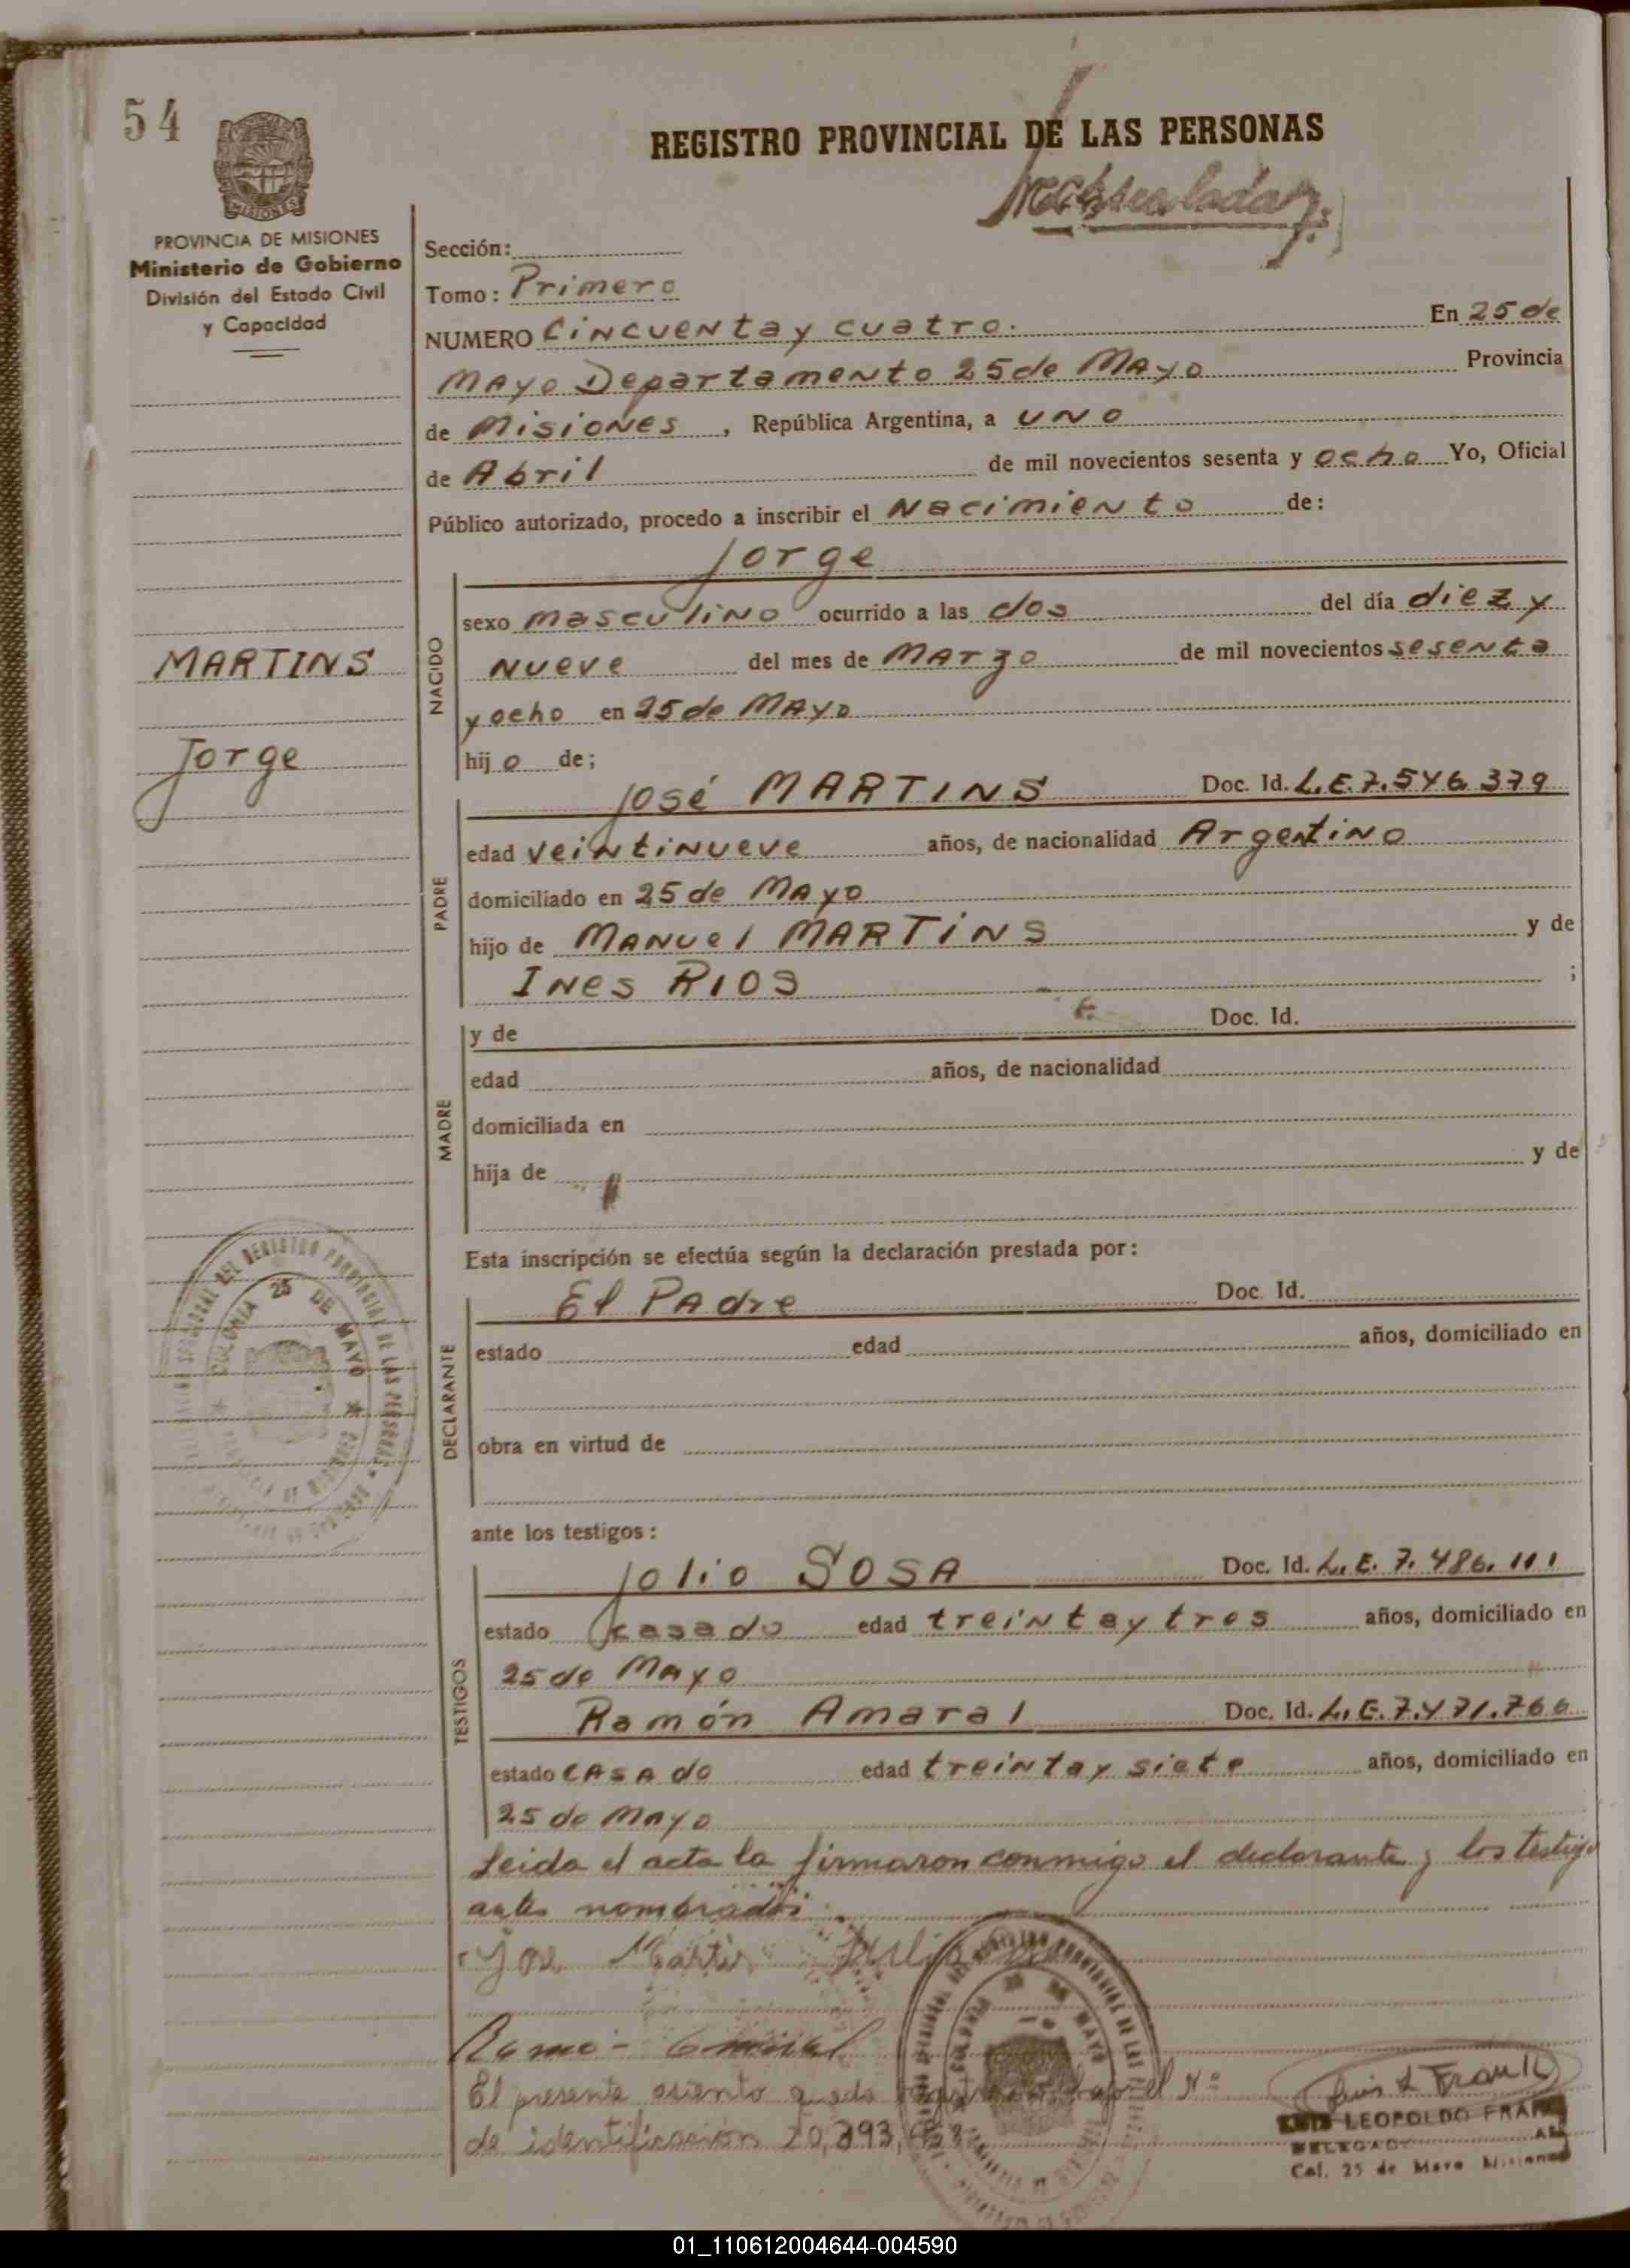 54
MISIONES
PROVINCIA DE MISIONES
Ministerio de Gobierno
División del Estado Civil
y Capacidad
REGISTRO PROVINCIAL DE LAS PERSONAS
Sección:
Tomo: Primero
NUMERO Cincuenta y cuatro. En 25 de
Mayo Departamento 25 de Mayo Provincia
de Misiones, República Argentina, a uno
de Abril de mil novecientos sesenta y ocho Yo, Oficial
Público autorizado, procedo a inscribir el Nacimiento de:
Jorge
NACIDO
sexo masculino ocurrido a las dos del día diez y
nueve del mes de Marzo de mil novecientos sesenta
y ocho en 25 de Mayo
hijo de;
MARTINS
Jorge
PADRE
José MARTINS Doc. Id. L.E. 7.546.379
edad veintinueve años, de nacionalidad Argentino
domiciliado en 25 de Mayo
hijo de Manuel MARTINS y de
Ines RIOS ;
MADRE
y de Doc. Id.
edad años, de nacionalidad
domiciliada en
hija de y de
Esta inscripción se efectúa según la declaración prestada por:
DECLARANTE
El Padre Doc. Id.
estado edad años, domiciliado en
obra en virtud de
COLONIA 25 DE MAYO
ante los testigos:
TESTIGOS
Jolio SOSA Doc. Id. L.E. 7.486.111
estado casado edad treinta y tres años, domiciliado en
25 de Mayo
Ramón Amaral Doc. Id. L.E. 7.471.766
estado casado edad treinta y siete años, domiciliado en
25 de Mayo
Leida el acta la firmaron conmigo el declarante y los testigos
antes nombrados
José Martins Julio
El presente asiento queda bajo el Nº
de identificación 20,393,
Luis L Frank
LUIS LEOPOLDO FRANK
Col. 25 de Mayo Misiones
01_110612004644-004590